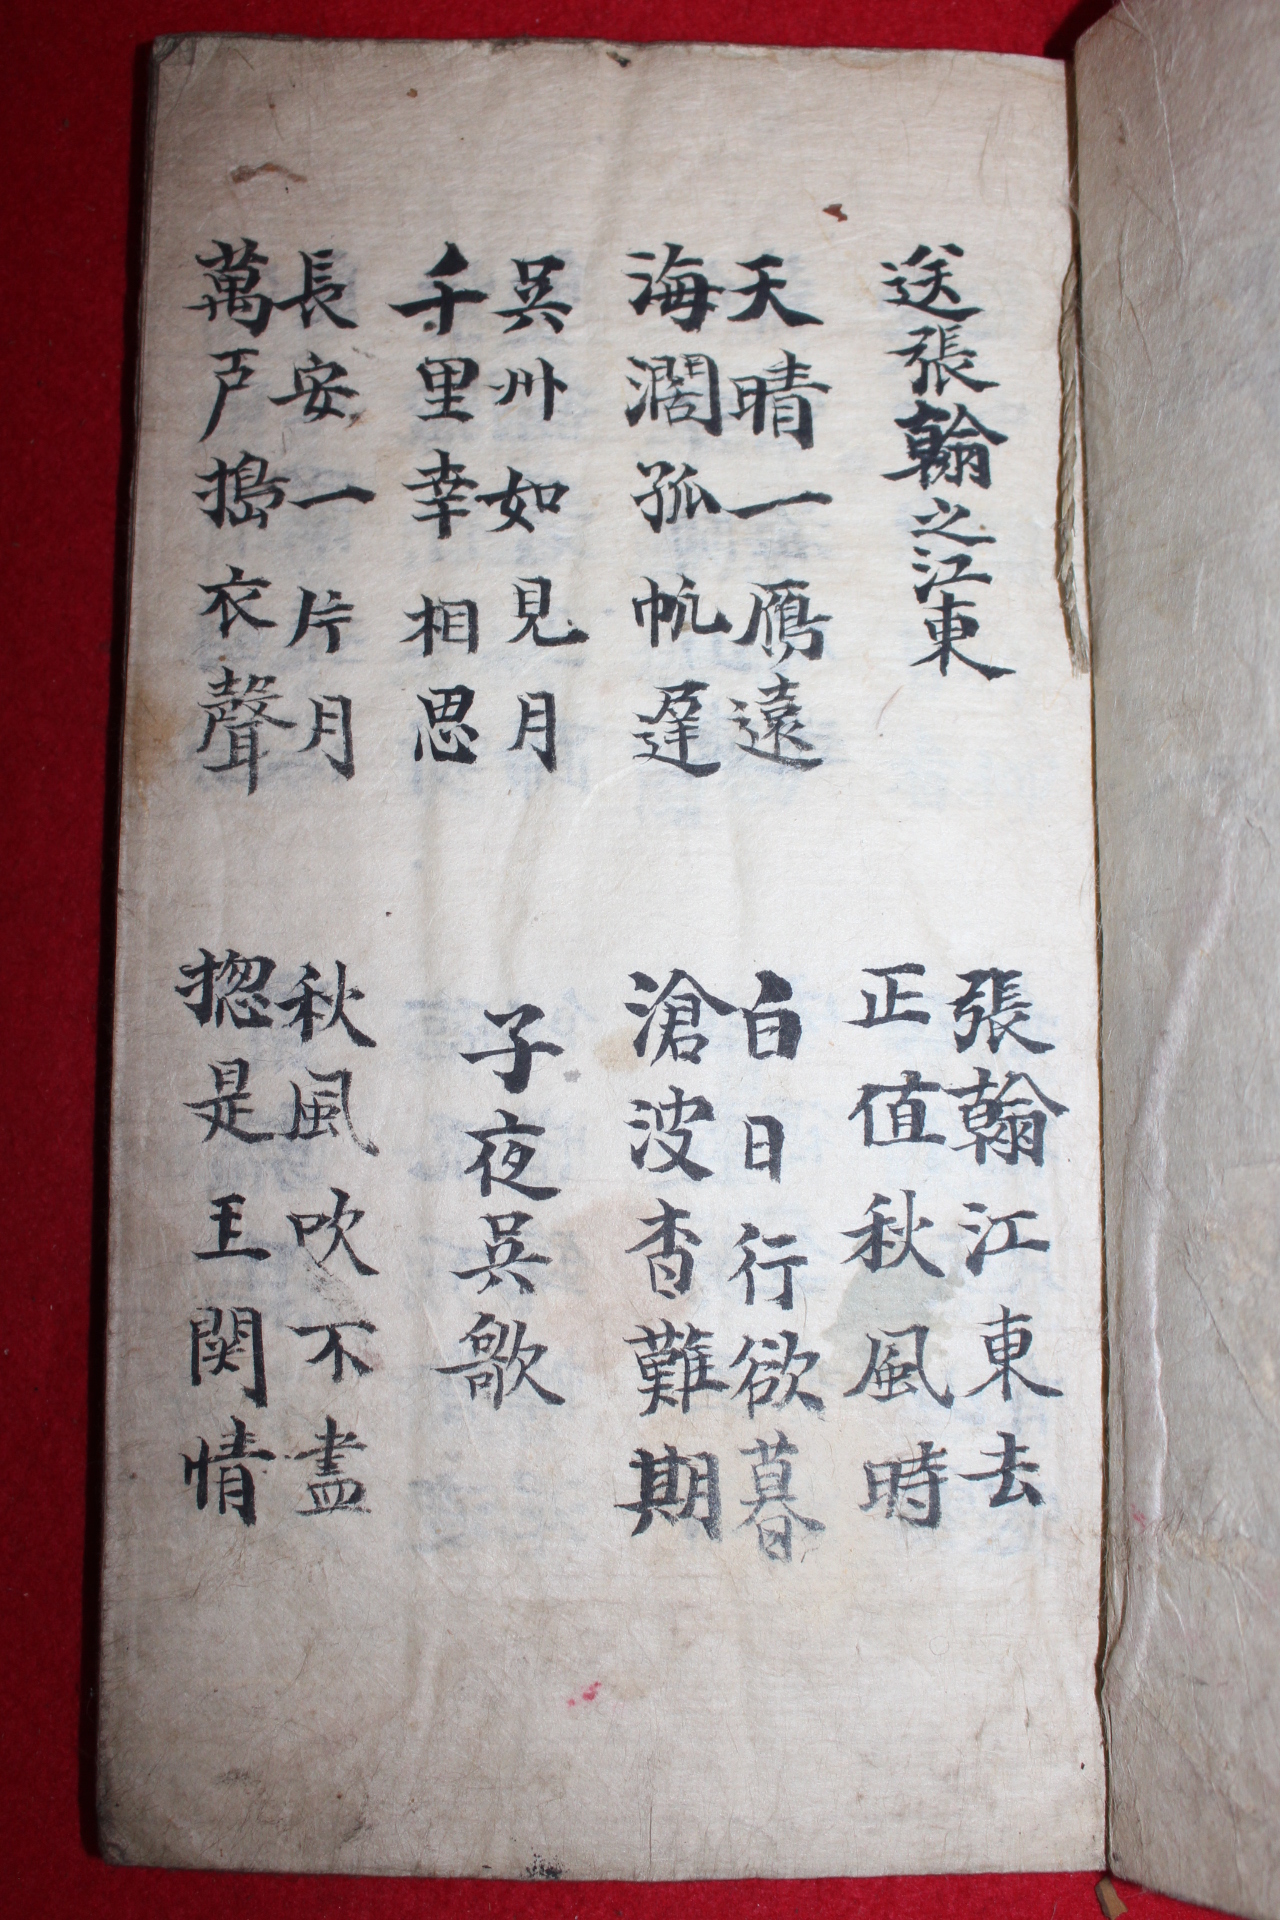 送張翰之江東
張翰江東去
正値秋風時
天晴一鴈遠
海濶孤帆遲
白日行欲暮
滄波杳難期
吳州如見月
千里幸相思
子夜吳歌
長安一片月
萬戶搗衣聲
秋風吹不盡
揔是玉関情